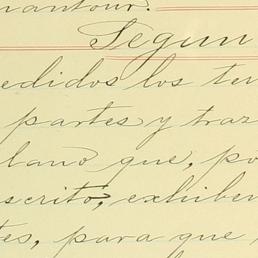 nantour.
Segun
edidos los ter
partes y traz
lano que, po
scrito, exhiben
tes, para que